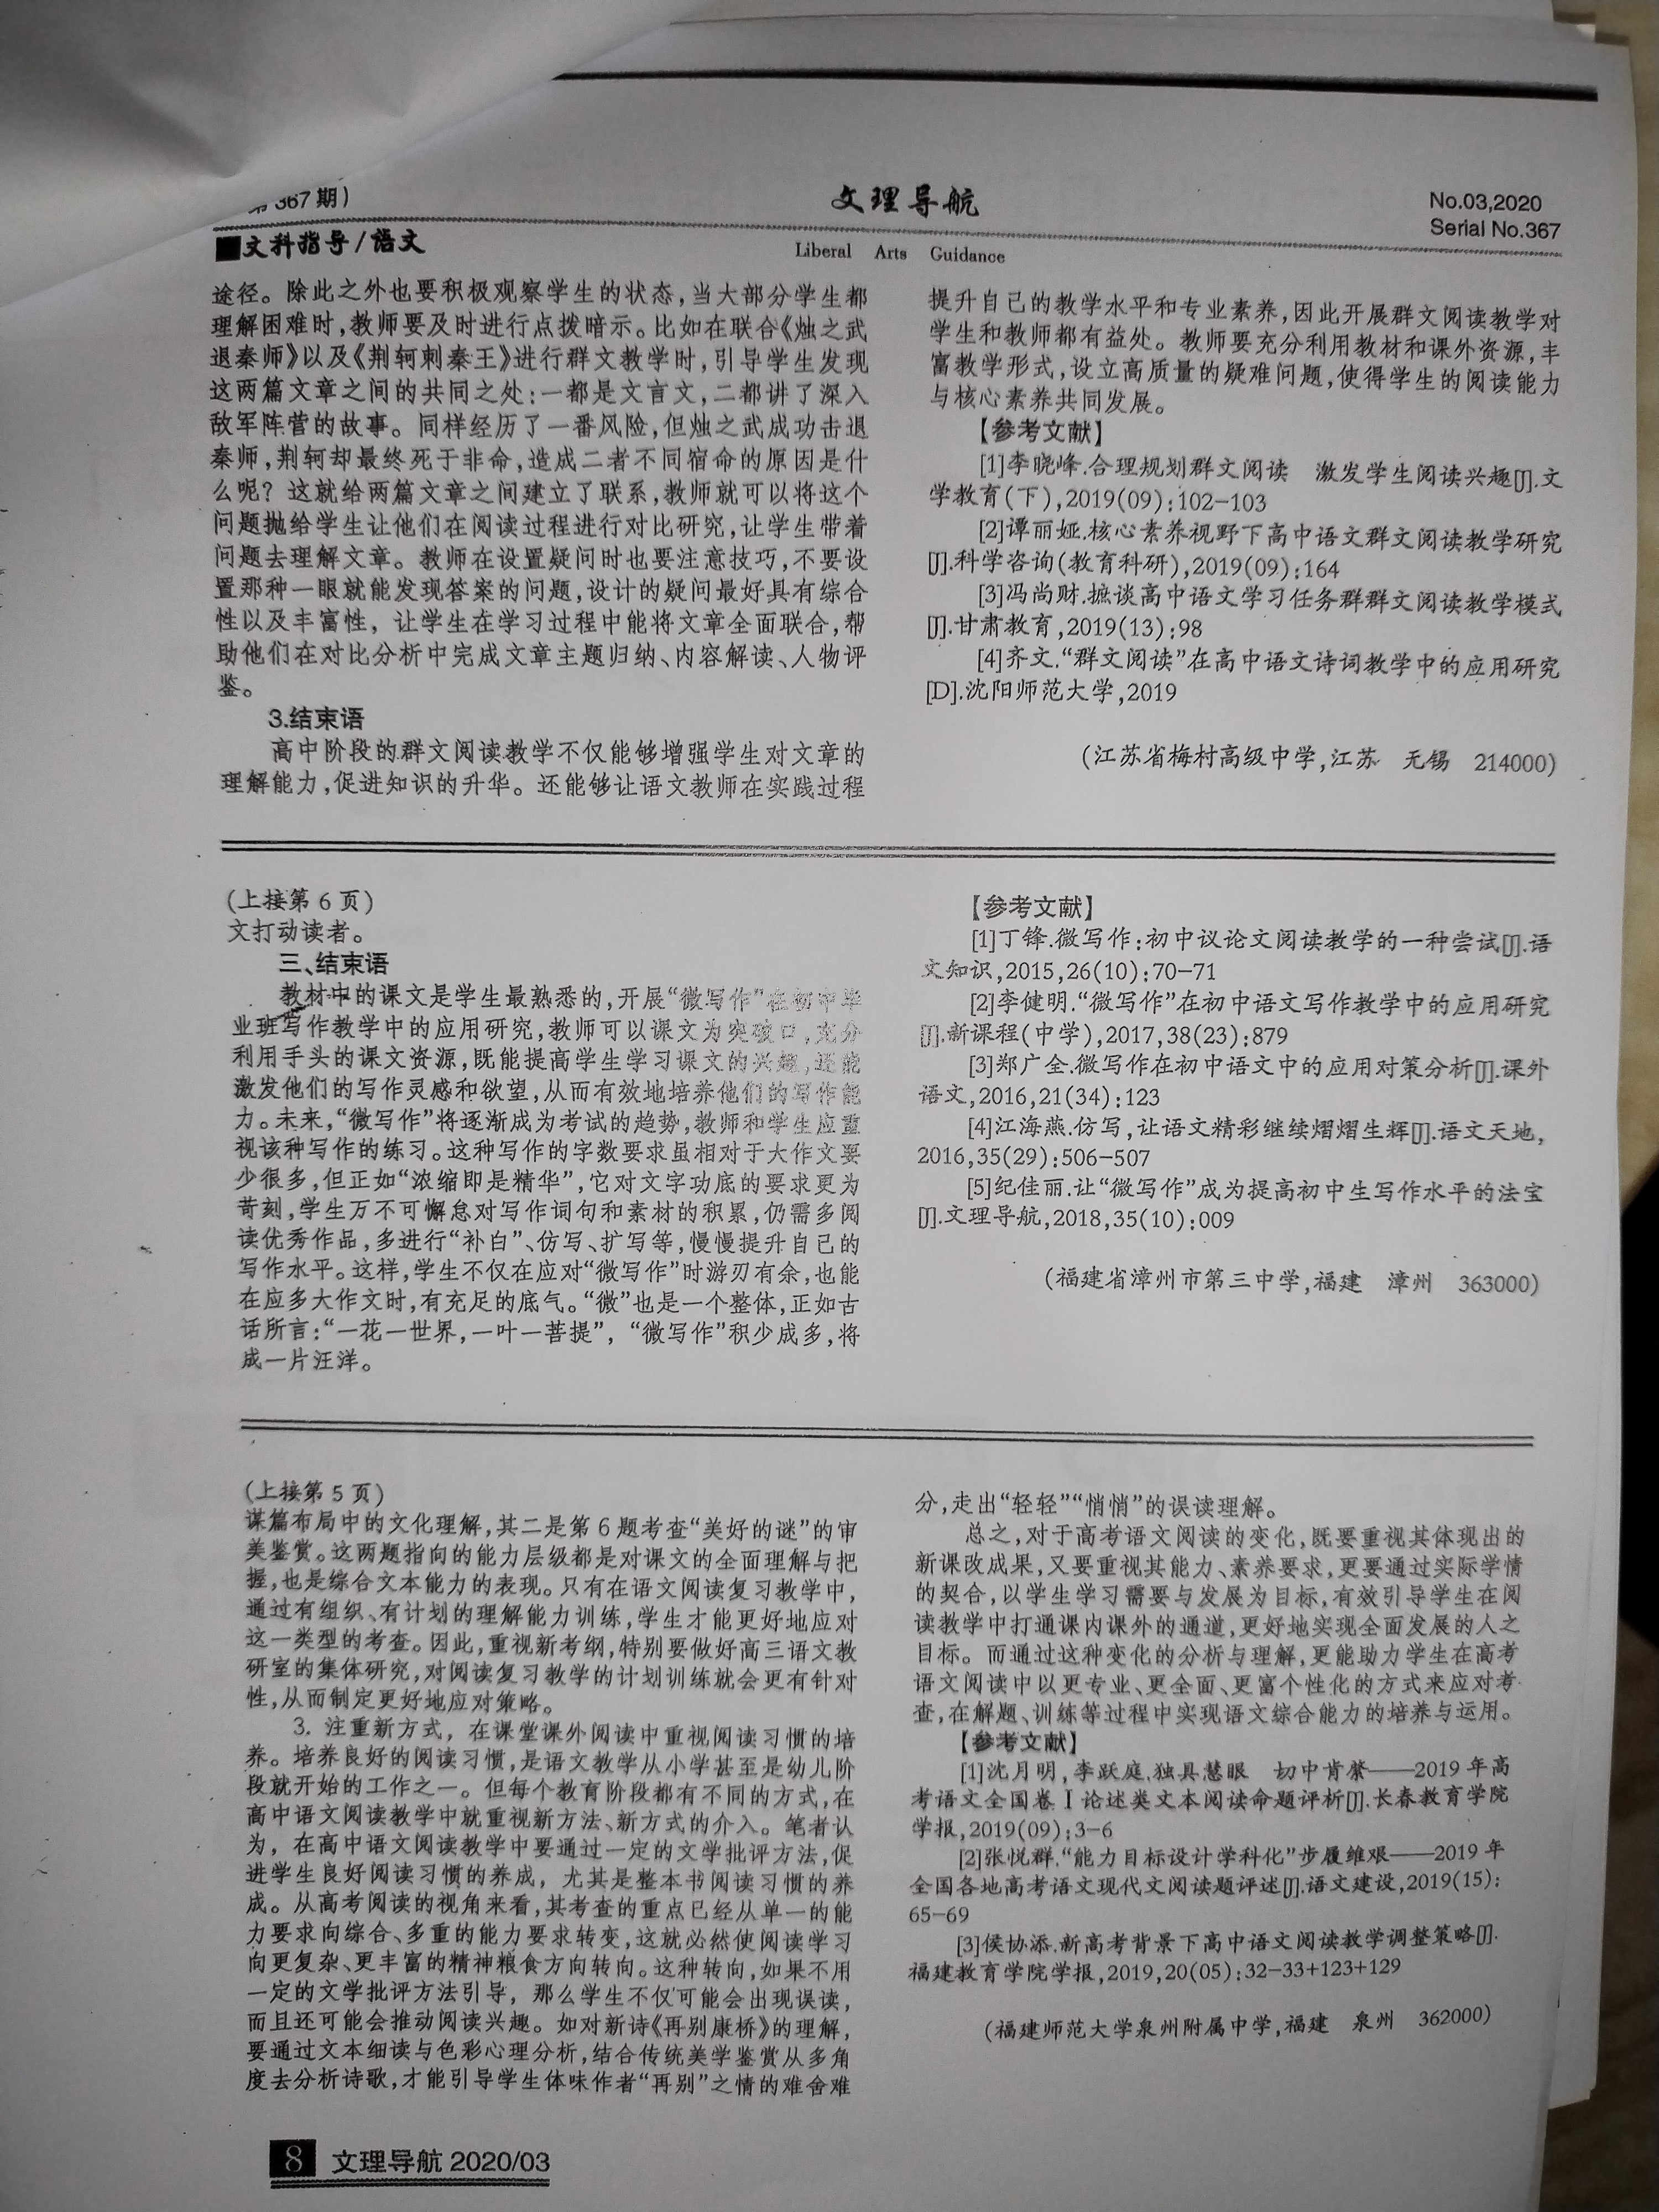 第 367 期)
文理导航
Liberal Arts Guidance
No.03,2020
Serial No.367
■文科指导/语文
途径。除此之外也要积极观察学生的状态,当大部分学生都
理解困难时,教师要及时进行点拨暗示。比如在联合《烛之武
退秦师》以及《荆轲刺秦王》进行群文教学时,引导学生发现
这两篇文章之间的共同之处:一都是文言文,二都讲了深入
敌军阵营的故事。同样经历了一番风险,但烛之武成功击退
秦师,荆轲却最终死于非命,造成二者不同宿命的原因是什
么呢?这就给两篇文章之间建立了联系,教师就可以将这个
问题抛给学生让他们在阅读过程进行对比研究,让学生带着
问题去理解文章。教师在设置疑问时也要注意技巧,不要设
置那种一眼就能发现答案的问题,设计的疑问最好具有综合
性以及丰富性,让学生在学习过程中能将文章全面联合,帮
助他们在对比分析中完成文章主题归纳、内容解读、人物评
鉴。
3.结束语
高中阶段的群文阅读教学不仅能够增强学生对文章的
理解能力,促进知识的升华。还能够让语文教师在实践过程
提升自己的教学水平和专业素养,因此开展群文阅读教学对
学生和教师都有益处。教师要充分利用教材和课外资源,丰
富教学形式,设立高质量的疑难问题,使得学生的阅读能力
与核心素养共同发展。
【参考文献】
[1]李晓峰.合理规划群文阅读 激发学生阅读兴趣[J].文
学教育(下),2019(09):102-103
[2]谭丽娅.核心素养视野下高中语文群文阅读教学研究
[J].科学咨询(教育科研),2019(09):164
[3]冯尚财.摭谈高中语文学习任务群群文阅读教学模式
[J].甘肃教育,2019(13):98
[4]齐文.“群文阅读”在高中语文诗词教学中的应用研究
[D].沈阳师范大学,2019
(江苏省梅村高级中学,江苏 无锡 214000)
(上接第 6 页)
文打动读者。
三、结束语
教材中的课文是学生最熟悉的,开展“微写作”在初中毕
业班写作教学中的应用研究,教师可以课文为突破口,充分
利用手头的课文资源,既能提高学生学习课文的兴趣,还能
激发他们的写作灵感和欲望,从而有效地培养他们的写作能
力。未来,“微写作”将逐渐成为考试的趋势,教师和学生应重
视该种写作的练习。这种写作的字数要求虽相对于大作文要
少很多,但正如“浓缩即是精华”,它对文字功底的要求更为
苛刻,学生万不可懈怠对写作词句和素材的积累,仍需多阅
读优秀作品,多进行“补白”、仿写、扩写等,慢慢提升自己的
写作水平。这样,学生不仅在应对“微写作”时游刃有余,也能
在应多大作文时,有充足的底气。“微”也是一个整体,正如古
话所言:“一花一世界,一叶一菩提”,“微写作”积少成多,将
成一片汪洋。
【参考文献】
[1]丁锋.微写作:初中议论文阅读教学的一种尝试[J].语
文知识,2015,26(10):70-71
[2]李健明.“微写作”在初中语文写作教学中的应用研究
[J].新课程(中学),2017,38(23):879
[3]郑广全.微写作在初中语文中的应用对策分析[J].课外
语文,2016,21(34):123
[4]江海燕.仿写,让语文精彩继续熠熠生辉[J].语文天地,
2016,35(29):506-507
[5]纪佳丽.让“微写作”成为提高初中生写作水平的法宝
[J].文理导航,2018,35(10):009
(福建省漳州市第三中学,福建 漳州 363000)
(上接第 5 页)
谋篇布局中的文化理解,其二是第 6 题考查“美好的谜”的审
美鉴赏。这两题指向的能力层级都是对课文的全面理解与把
握,也是综合文本能力的表现。只有在语文阅读复习教学中,
通过有组织、有计划的理解能力训练,学生才能更好地应对
这一类型的考查。因此,重视新考纲,特别要做好高三语文教
研室的集体研究,对阅读复习教学的计划训练就会更有针对
性,从而制定更好地应对策略。
3. 注重新方式,在课堂课外阅读中重视阅读习惯的培
养。培养良好的阅读习惯,是语文教学从小学甚至是幼儿阶
段就开始的工作之一。但每个教育阶段都有不同的方式,在
高中语文阅读教学中就重视新方法、新方式的介入。笔者认
为,在高中语文阅读教学中要通过一定的文学批评方法,促
进学生良好阅读习惯的养成,尤其是整本书阅读习惯的养
成。从高考阅读的视角来看,其考查的重点已经从单一的能
力要求向综合、多重的能力要求转变,这就必然使阅读学习
向更复杂、更丰富的精神粮食方向转向。这种转向,如果不用
一定的文学批评方法引导,那么学生不仅可能会出现误读,
而且还可能会推动阅读兴趣。如对新诗《再别康桥》的理解,
要通过文本细读与色彩心理分析,结合传统美学鉴赏从多角
度去分析诗歌,才能引导学生体味作者“再别”之情的难舍难
分,走出“轻轻”“悄悄”的误读理解。
总之,对于高考语文阅读的变化,既要重视其体现出的
新课改成果,又要重视其能力、素养要求,更要通过实际学情
的契合,以学生学习需要与发展为目标,有效引导学生在阅
读教学中打通课内课外的通道,更好地实现全面发展的人之
目标。而通过这种变化的分析与理解,更能助力学生在高考
语文阅读中以更专业、更全面、更富个性化的方式来应对考
查,在解题、训练等过程中实现语文综合能力的培养与运用。
【参考文献】
[1]沈月明,李跃庭.独具慧眼 切中肯綮——2019 年高
考语文全国卷Ⅰ论述类文本阅读命题评析[J].长春教育学院
学报,2019(09):3-6
[2]张悦群.“能力目标设计学科化”步履维艰——2019 年
全国各地高考语文现代文阅读题评述[J].语文建设,2019(15):
65-69
[3]侯协添.新高考背景下高中语文阅读教学调整策略[J].
福建教育学院学报,2019,20(05):32-33+123+129
(福建师范大学泉州附属中学,福建 泉州 362000)
8 文理导航 2020/03